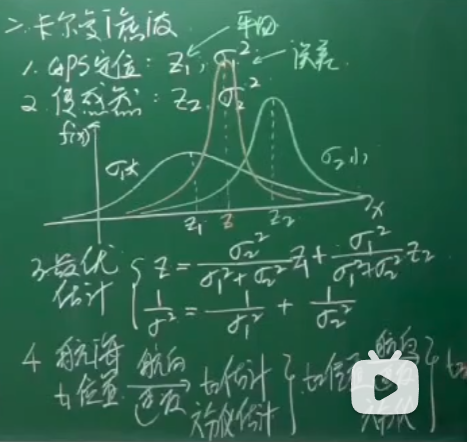 二、卡尔曼滤波
平均
1. GPS定位: z₁, σ₁² 误差
2. 传感器: z₂, σ₂²
f(x)
σ₁大 σ₂小
z₁ z z₂ x
3 最优估计 { z = σ₂²/(σ₁²+σ₂²) z₁ + σ₁²/(σ₁²+σ₂²) z₂
1/σ² = 1/σ₁² + 1/σ₂²
4 航海 航向
t₁位置 速度 t₂估计
方位估计
t₂位置